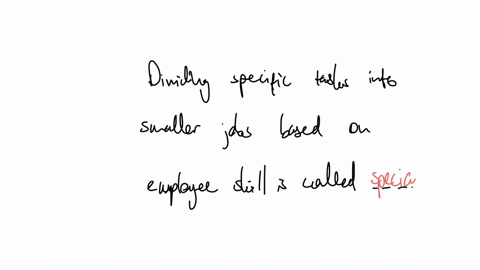 Dividing specific tasks into
smaller jobs based on
employee skill is called specia